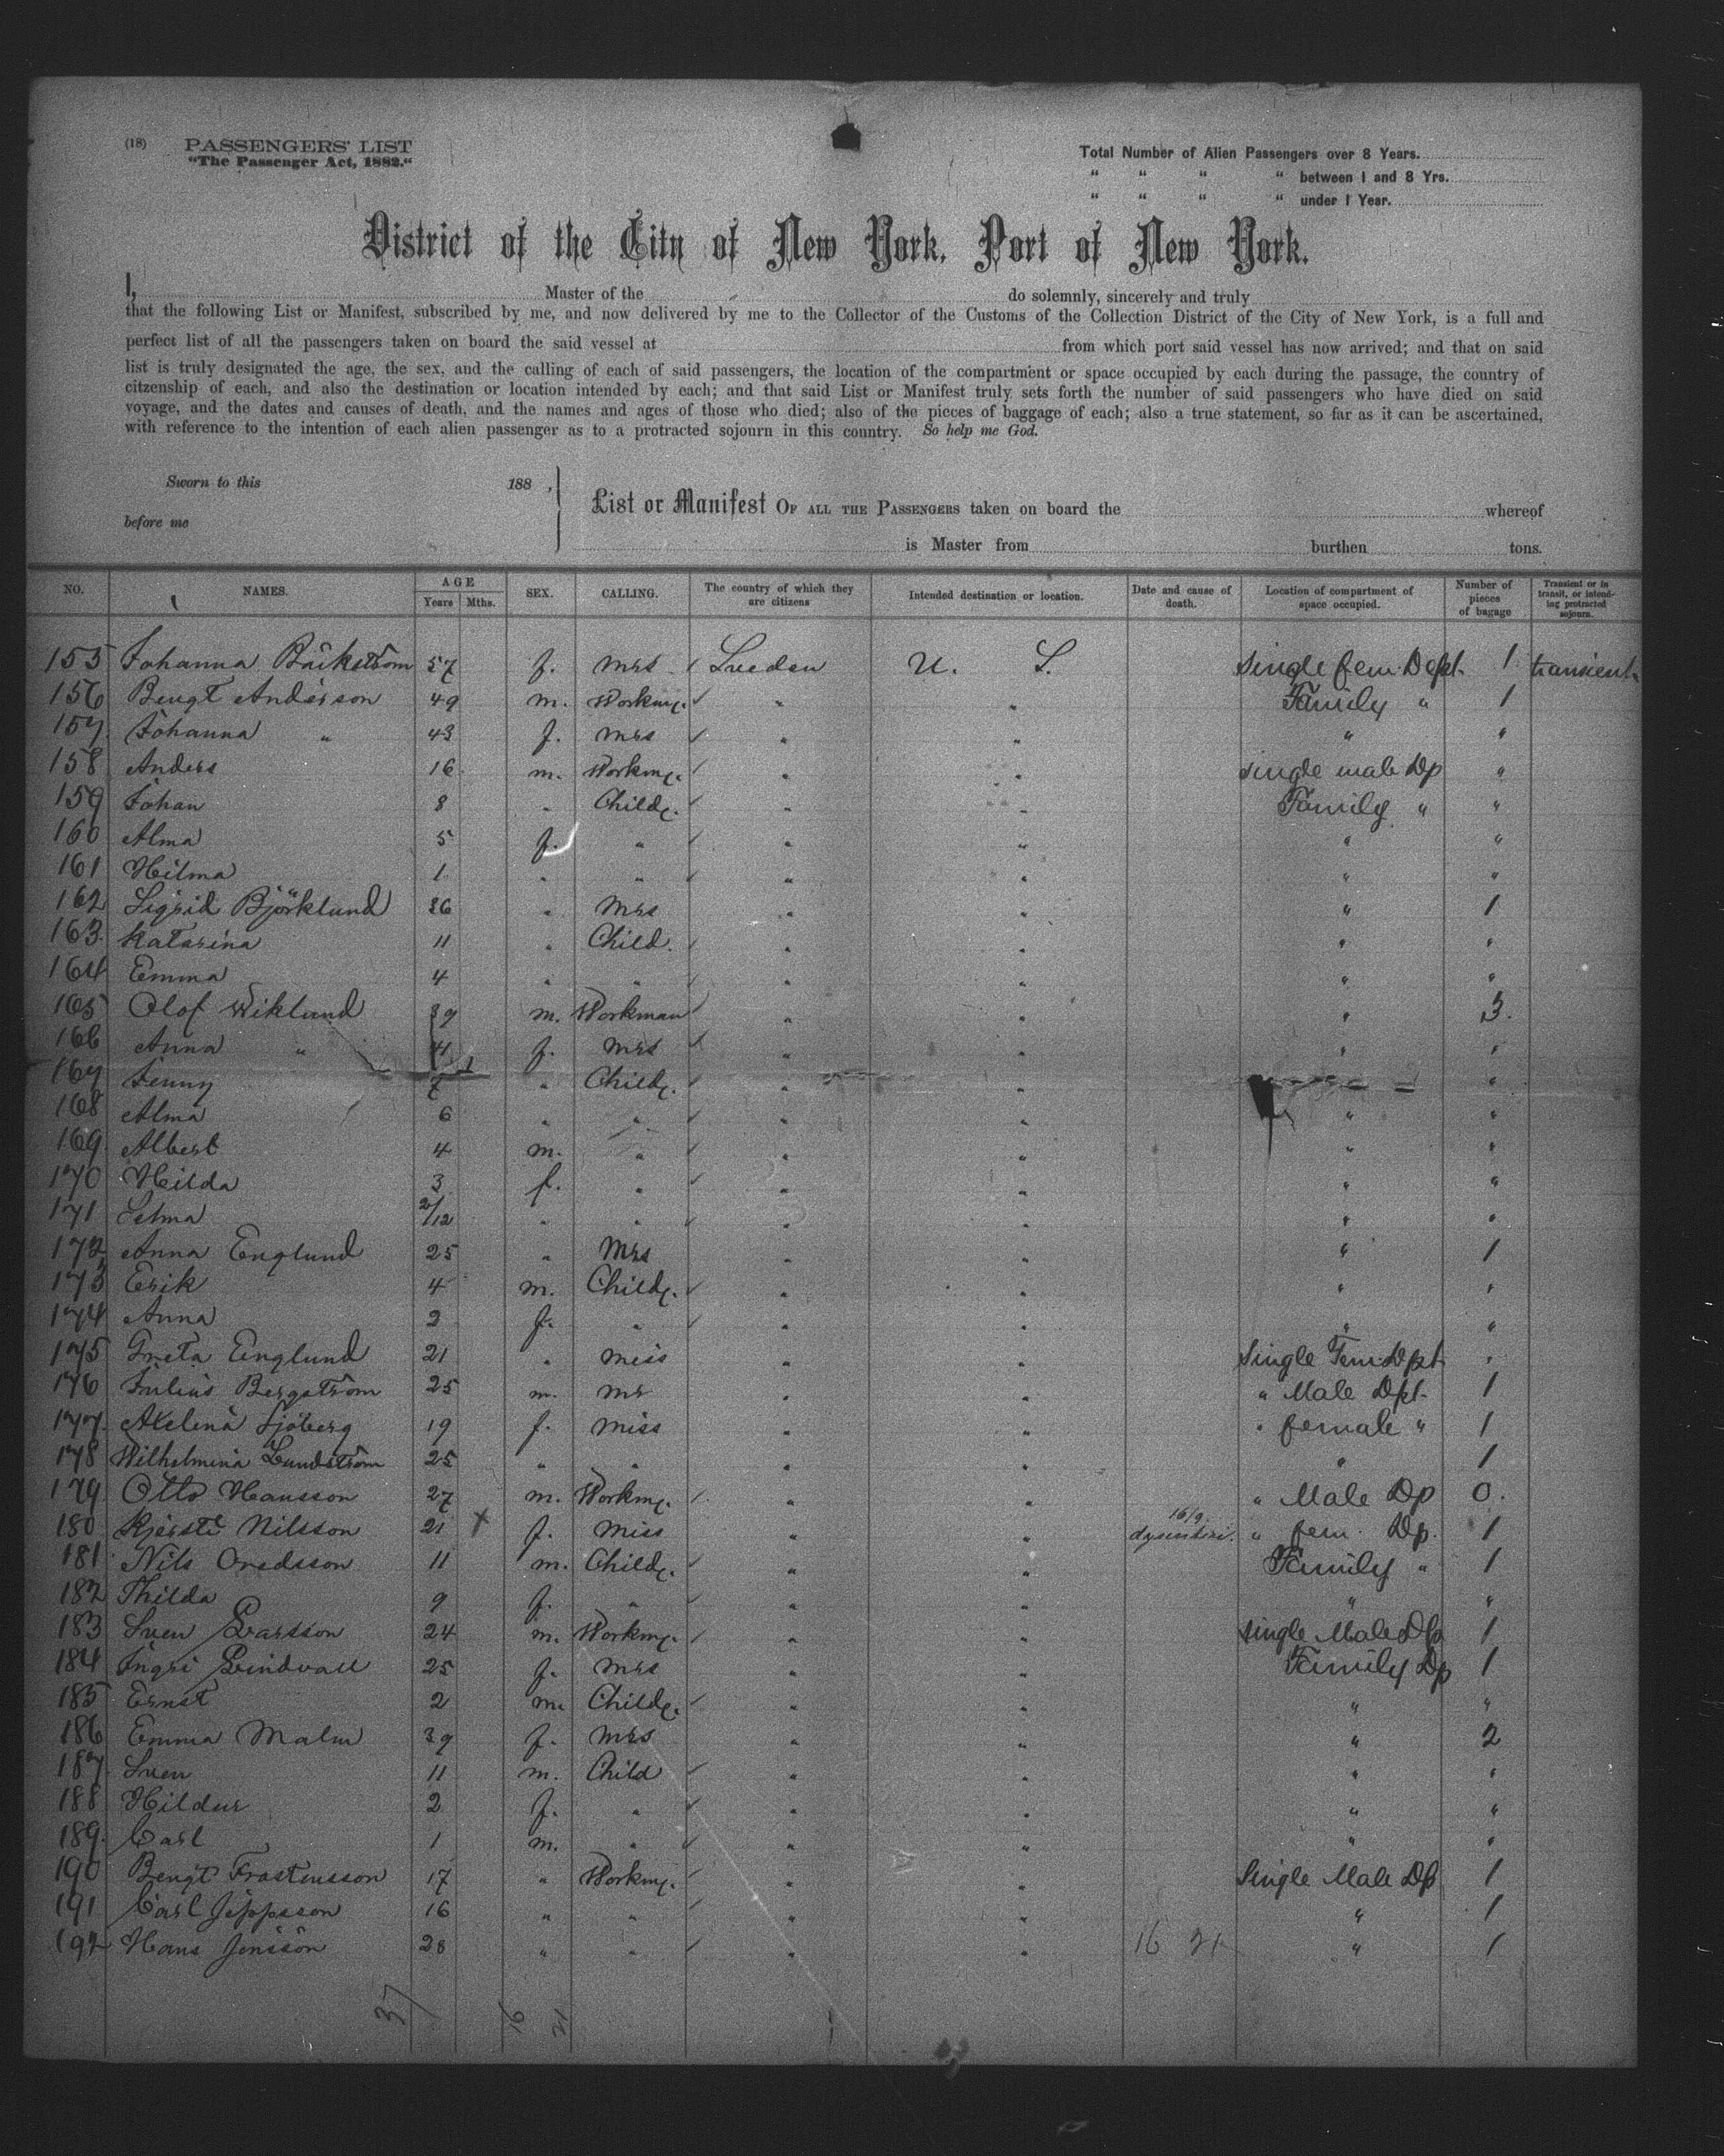 (18) PASSENGERS' LIST
"The Passenger Act, 1882."
Total Number of Alien Passengers over 8 Years.
" " " " between 1 and 8 Yrs.
" " " " under 1 Year.
District of the City of New York, Port of New York.
I, Master of the do solemnly, sincerely and truly
that the following List or Manifest, subscribed by me, and now delivered by me to the Collector of the Customs of the Collection District of the City of New York, is a full and
perfect list of all the passengers taken on board the said vessel at from which port said vessel has now arrived; and that on said
list is truly designated the age, the sex, and the calling of each of said passengers, the location of the compartment or space occupied by each during the passage, the country of
citzenship of each, and also the destination or location intended by each; and that said List or Manifest truly sets forth the number of said passengers who have died on said
voyage, and the dates and causes of death, and the names and ages of those who died; also of the pieces of baggage of each; also a true statement, so far as it can be ascertained,
with reference to the intention of each alien passenger as to a protracted sojourn in this country. So help me God.
Sworn to this 188 ,
before me
List or Manifest OF ALL THE PASSENGERS taken on board the whereof
is Master from burthen tons.
NO. NAMES. AGE Years Mths. SEX. CALLING. The country of which they are citizens Intended destination or location. Date and cause of death. Location of compartment of space occupied. Number of pieces of bagage Transient or in transit, or intending protracted sojourn.
155 Johanna Bäckström 57 f. Mrs Sweden U. S. Single fem. Dept. 1 transient
156 Bengt Anderson 49 m. Workmn. " " Family " 1
157 Johanna " 43 f. Mrs " " " "
158 Anders 16 m. Workmn. " " single male Dp "
159 Johan 8 " Childr. " " Family " "
160 Alma 5 f. " " " " "
161 Hilma 1 " " " " " "
162 Sigrid Björklund 36 " Mrs " " " 1
163 Katarina 11 " Child. " " " "
164 Emma 4 " " " " " "
165 Olof Wiklund 39 m. Workman " " " 3.
166 Anna " 41 f. Mrs " " " "
167 Jenny 7 " Childr. " " "
168 Alma 6 " " " " " "
169 Albert 4 m. " " " " "
170 Hilda 3 f. " " " " "
171 Selma 2/12 " " " " " "
172 Anna Englund 25 " Mrs " " " 1
173 Erik 4 m. Childr. " " " "
174 Anna 2 f. " " " " "
175 Greta Englund 21 " Miss " " Single Fem. Dpt. "
176 Julius Bergström 25 m. Mr " " " Male Dpt. 1
177 Axelina Sjöberg 19 f. Miss " " " female " 1
178 Wilhelmina Lundström 25 " " " " " 1
179 Otto Hansson 27 m. Workmn. " " " Male Dp 0.
180 Kjersti Nilsson 21 x f. Miss " " 16/9 " fem. Dp. 1
181 Nils Oredsson 11 m. Childr. " " Family " 1
182 Thilda 9 f. " " " " "
183 Sven Larsson 24 m. Workmn. " " single Male Dp 1
184 Ingri Lindvall 25 f. Mrs " " Family Dp 1
185 Ernst 2 m. Childr. " " " "
186 Emma Malm 39 f. Mrs " " " 2
187 Sven 11 m. Child " " " "
188 Hildur 2 f. " " " " "
189 Carl 1 m. " " " " "
190 Bengt Trostensson 17 " Workmn. " " Single Male Dp 1
191 Carl Jeppsson 16 " " " " " 1
192 Hans Jönsson 28 " " " " 16 21 " 1
37 16 21